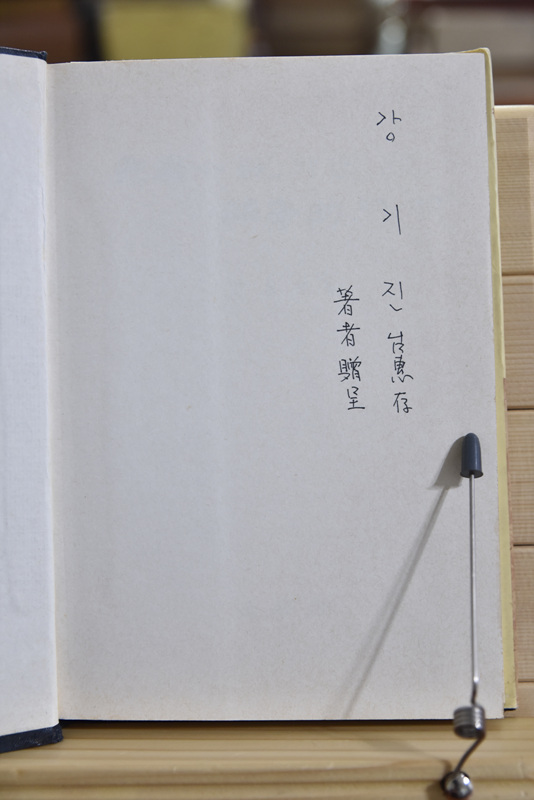 강 기 진 惠存
著者 贈呈